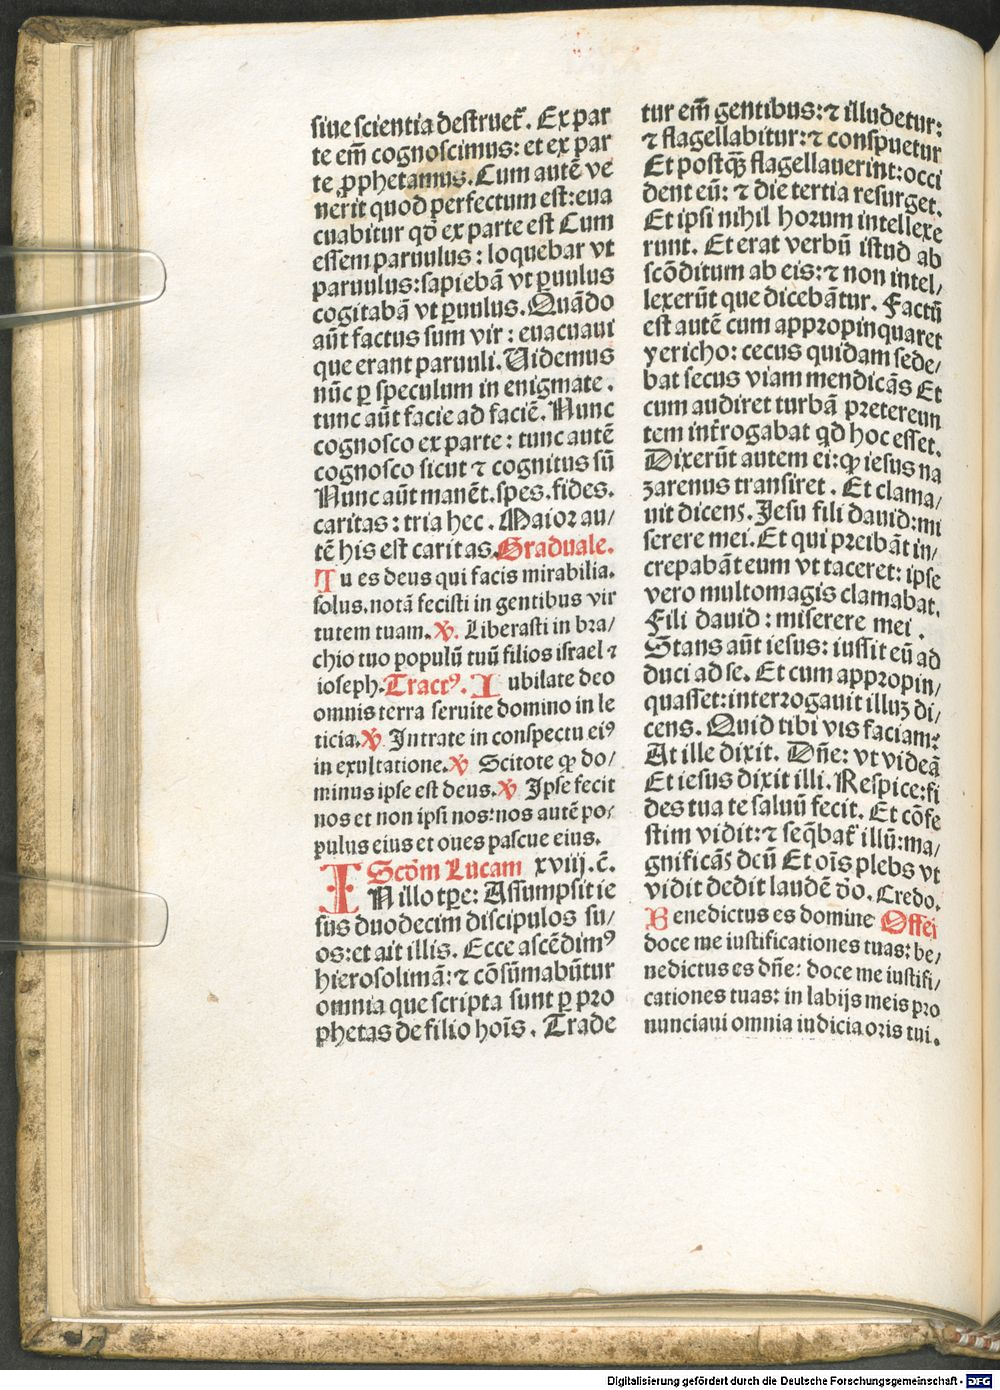 siue scientia destruet᷑. Ex par
te em̄ cognoscimus: et ex par
te ꝓphetamus. Cum autē ve
nerit quod perfectum est: eua
cuabitur qḋ ex parte est Cum
essem paruulus: loquebar vt
paruulus: sapiebā vt ꝑuulus
cogitabā vt ꝑuulus. Quādo
aūt factus sum vir: euacuaui
que erant paruuli. Uidemus
nūc ꝑ speculum in enigmate.
tunc aūt facie ad faciē. Nunc
cognosco ex parte: tunc autē
cognosco sicut ⁊ cognitus sū
Nunc aūt manēt. spes. fides.
caritas: tria hec. Maioꝛ au/
tē his est caritas. Graduale.
Tu es deus qui facis mirabilia.
solus. notā fecisti in gentibus vir
tutem tuam. ℣. Liberasti in bra/
chio tuo populū tuū filios israel ⁊
ioseph. Tractꝰ. Iubilate deo
omnis terra seruite domino in le
ticia. ℣ Intrate in conspectu eiꝰ
in exultatione. ℣ Scitote ꝙ do/
minus ipse est deus. ℣ Ipse fecit
nos et non ipsi nos: nos autē po/
pulus eius et oues pascue eius.
Scḋm Lucam xviij. c̄.
IN illo tꝑe: Assumpsit ie
sus duodecim discipulos su/
os: et ait illis. Ecce ascēdimꝰ
hierosolimā: ⁊ cōsūmabūtur
omnia que scripta sunt ꝑ pro
phetas de filio hoīs. Trade
tur em̄ gentibus: ⁊ illudetur:
⁊ flagellabitur: ⁊ conspuetur
Et postꝗ̄ flagellauerint: occi
dent eū: ⁊ die tertia resurget.
Et ipsi nihil hoꝛum intellexe
runt. Et erat verbū istud ab
scōditum ab eis: ⁊ non intel/
lexerūt que dicebātur. Factū
est autē cum appꝛopinquaret
yericho: cecus quidam sede/
bat secus viam mendicās Et
cum audiret turbā pꝛetereun
tem int̄rogabat qḋ hoc esset.
Dixerūt autem ei: ꝙ iesus na
zarenus transiret. Et clama/
uit dicens. Jesu fili dauid: mi
serere mei. Et qui pꝛeibāt in/
crepabāt eum vt taceret: ipse
vero multomagis clamabat.
Fili dauid: miserere mei.
Stans aūt iesus: iussit eū ad
duci ad se. Et cum appꝛopin/
quasset: interrogauit illuꝫ di/
cens. Quid tibi vis faciam:
At ille dixit. Dn̄e: vt videā
Et iesus dixit illi. Respice: fi
des tua te saluū fecit. Et cōfe
stim vidit: ⁊ seq̄bat᷑ illū: ma/
gnificās deū Et oīs plebs vt
vidit dedit laudē ḋo. Credo.
Benedictus es domine Offei
doce me iustificationes tuas: be/
nedictus es dn̄e: doce me iustifi/
cationes tuas: in labijs meis pꝛo
nunciaui omnia iudicia oris tui.
Digitalisierung gefördert durch die Deutsche Forschungsgemeinschaft - DFG